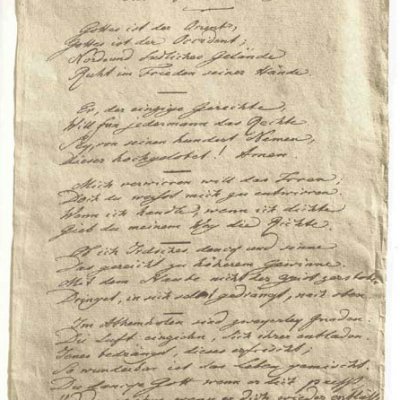 Gottes ist der Orient,
Gottes ist der Occident;
Nord und südliches Gelände
Ruht im Frieden seiner Hände
Er, der einzige Gerechte,
Will für jedermann das Rechte
Sey, von seinen hundert Namen,
Dieser hochgelobet! Amen.
Mich verwirren will das Irren;
Doch du weisst mich zu entwirren.
Wenn ich handle, wenn ich dichte
Gieb du meinem Weg die Richte
Ob ich Irdsches denck und sinne
Das gereicht zu höherem Gewinne
Mit dem Staube nicht der Geist zerstoben
Dringet, in sich selbst gedrängt, nach oben
Im Athemholen sind zweyerley Gnaden
Die Luft einziehn, sich ihrer entladen.
Jenes bedrängt, dieses erfrischt;
So wunderbar ist das Leben gemischt
Du danke Gott wenn er dich presst
wenn er dich wieder entlässt